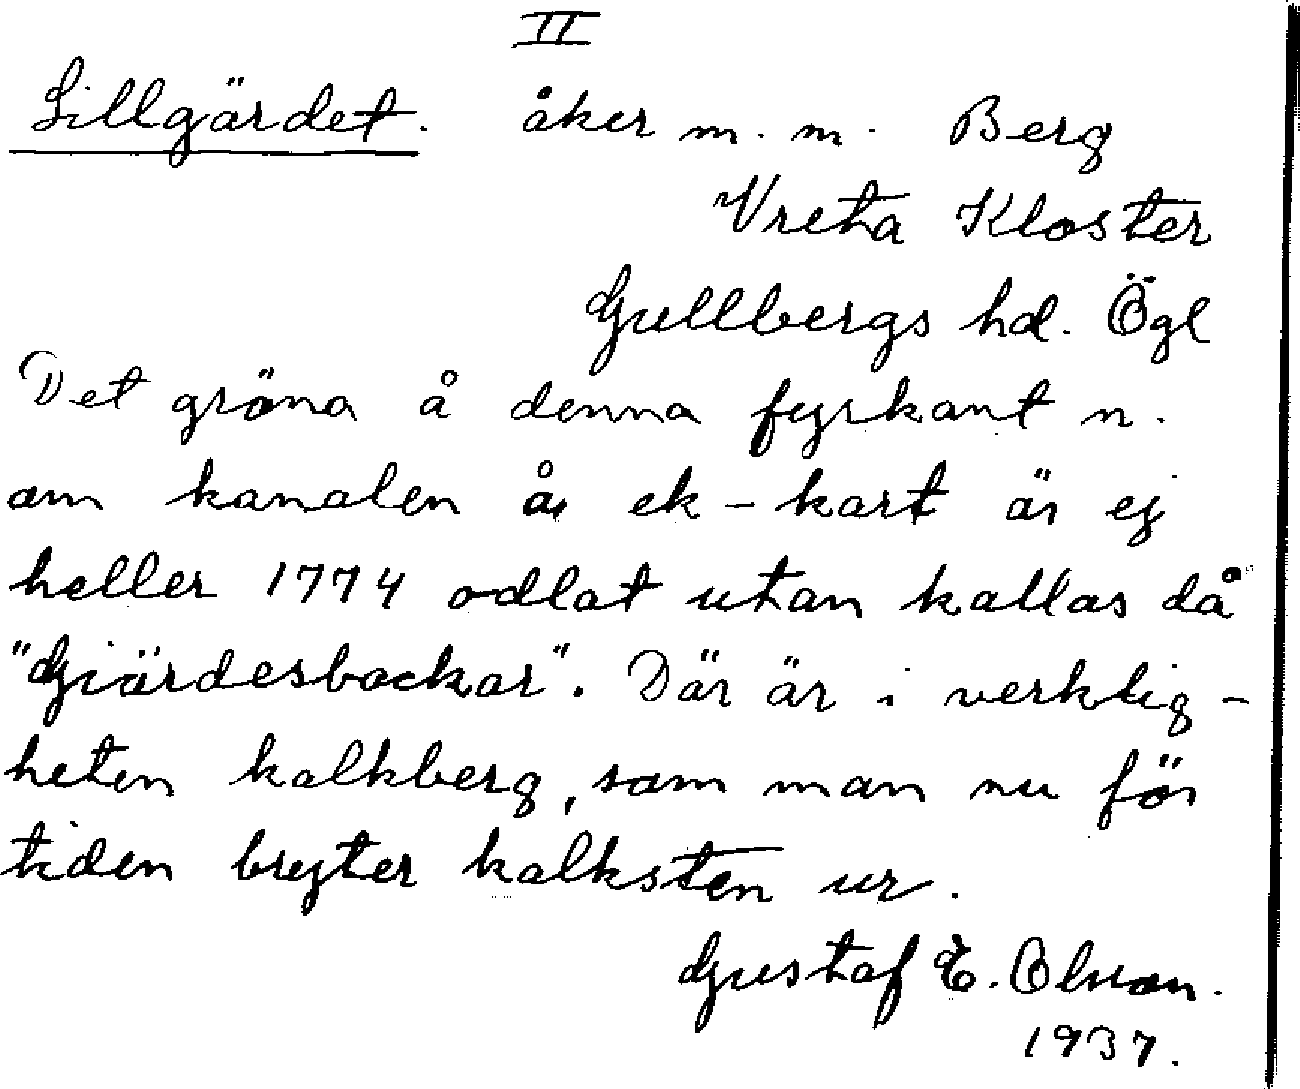 II
Lillgärdet. åker m. m. Berg
Vreta Kloster
Gullbergs hd. Ögl
Det gröna å denna fyrkant n.
om kanalen å ek-kart är ej
heller 1774 odlat utan kallas då
"Giärdesbackar". Där är i verklig-
heten kalkberg, som man nu för
tiden bryter kalksten ur.
Gustaf E. Olsson.
1937.